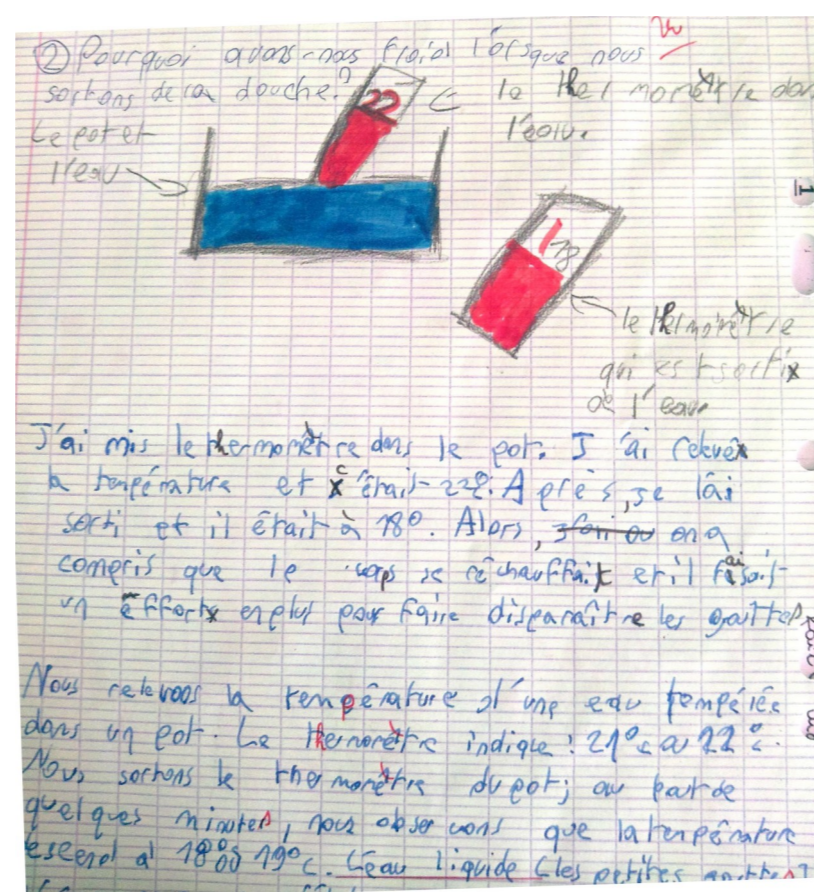 Vu
② Pourquoi avons-nous froid lorsque nous
sortons de la douche?
22
le thermomètre dans
l'eau.
Le pot et
l'eau
18
le thermomètre
qui est sorti
de l'eau
J'ai mis le thermomètre dans le pot. J'ai relevé
la température et c'était 22°. Après, je l'ai
sorti et il était à 18°. Alors, on a
compris que le corps se réchauffait et il faisait
un effort en plus pour faire disparaître les gouttes
Nous relevons la température d'une eau tempérée
dans un pot. Le thermomètre indique : 21°c à 22°c.
Nous sortons le thermomètre du pot; au bout de
quelques minutes, nous observons que la température
descend à 18° 19°c. L'eau liquide (les petites gouttes)